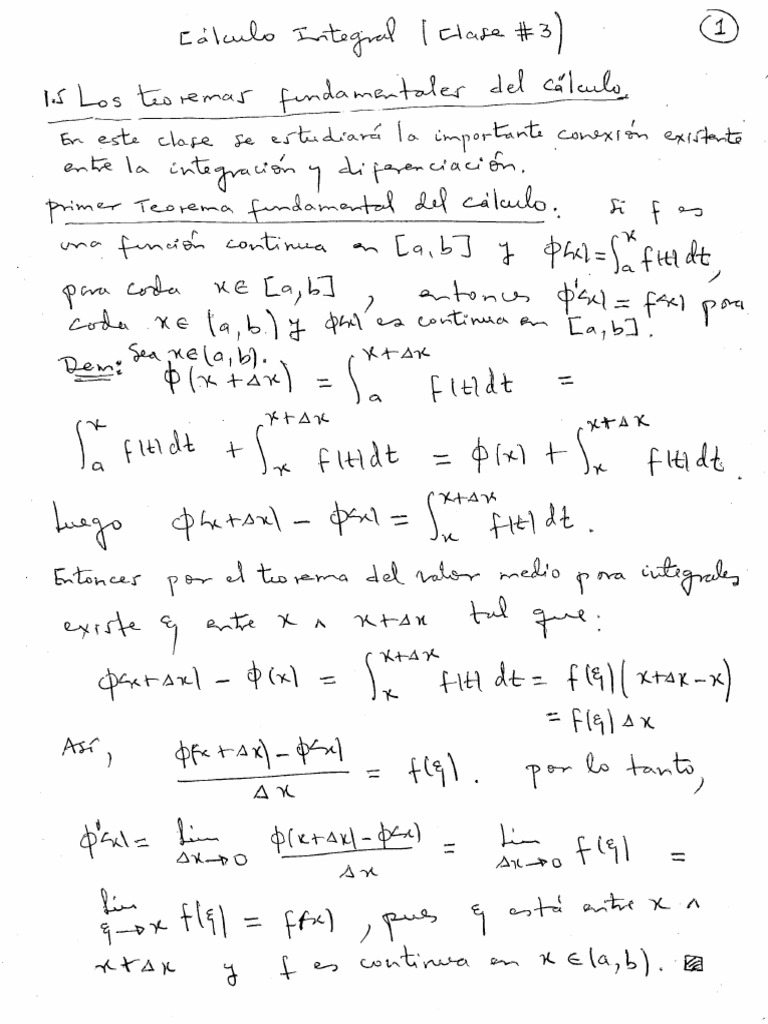 Cálculo Integral (Clase #3) ①
1.5 Los teoremas fundamentales del cálculo.
En este clase se estudiará la importante conexión existente
entre la integración y diferenciación.
Primer Teorema fundamental del cálculo: Si f es
una función continua en [a,b] y ϕ(x) = ∫_a^x f(t) dt,
para cada x ∈ [a,b], entonces ϕ'(x) = f(x) para
cada x ∈ (a,b) y ϕ(x) es continua en [a,b].
Dem: Sea x ∈ (a,b).
ϕ(x+Δx) = ∫_a^{x+Δx} f(t) dt =
∫_a^x f(t) dt + ∫_x^{x+Δx} f(t) dt = ϕ(x) + ∫_x^{x+Δx} f(t) dt.
Luego ϕ(x+Δx) − ϕ(x) = ∫_x^{x+Δx} f(t) dt.
Entonces por el teorema del valor medio para integrales
existe ξ entre x ∧ x+Δx tal que:
ϕ(x+Δx) − ϕ(x) = ∫_x^{x+Δx} f(t) dt = f(ξ)(x+Δx−x)
= f(ξ) Δx
Así, (ϕ(x+Δx) − ϕ(x)) / Δx = f(ξ). por lo tanto,
ϕ'(x) = Lim_{Δx→0} (ϕ(x+Δx) − ϕ(x)) / Δx = Lim_{Δx→0} f(ξ) =
Lim_{ξ→x} f(ξ) = f(x), pues ξ está entre x ∧
x+Δx y f es continua en x ∈ (a,b). ▨